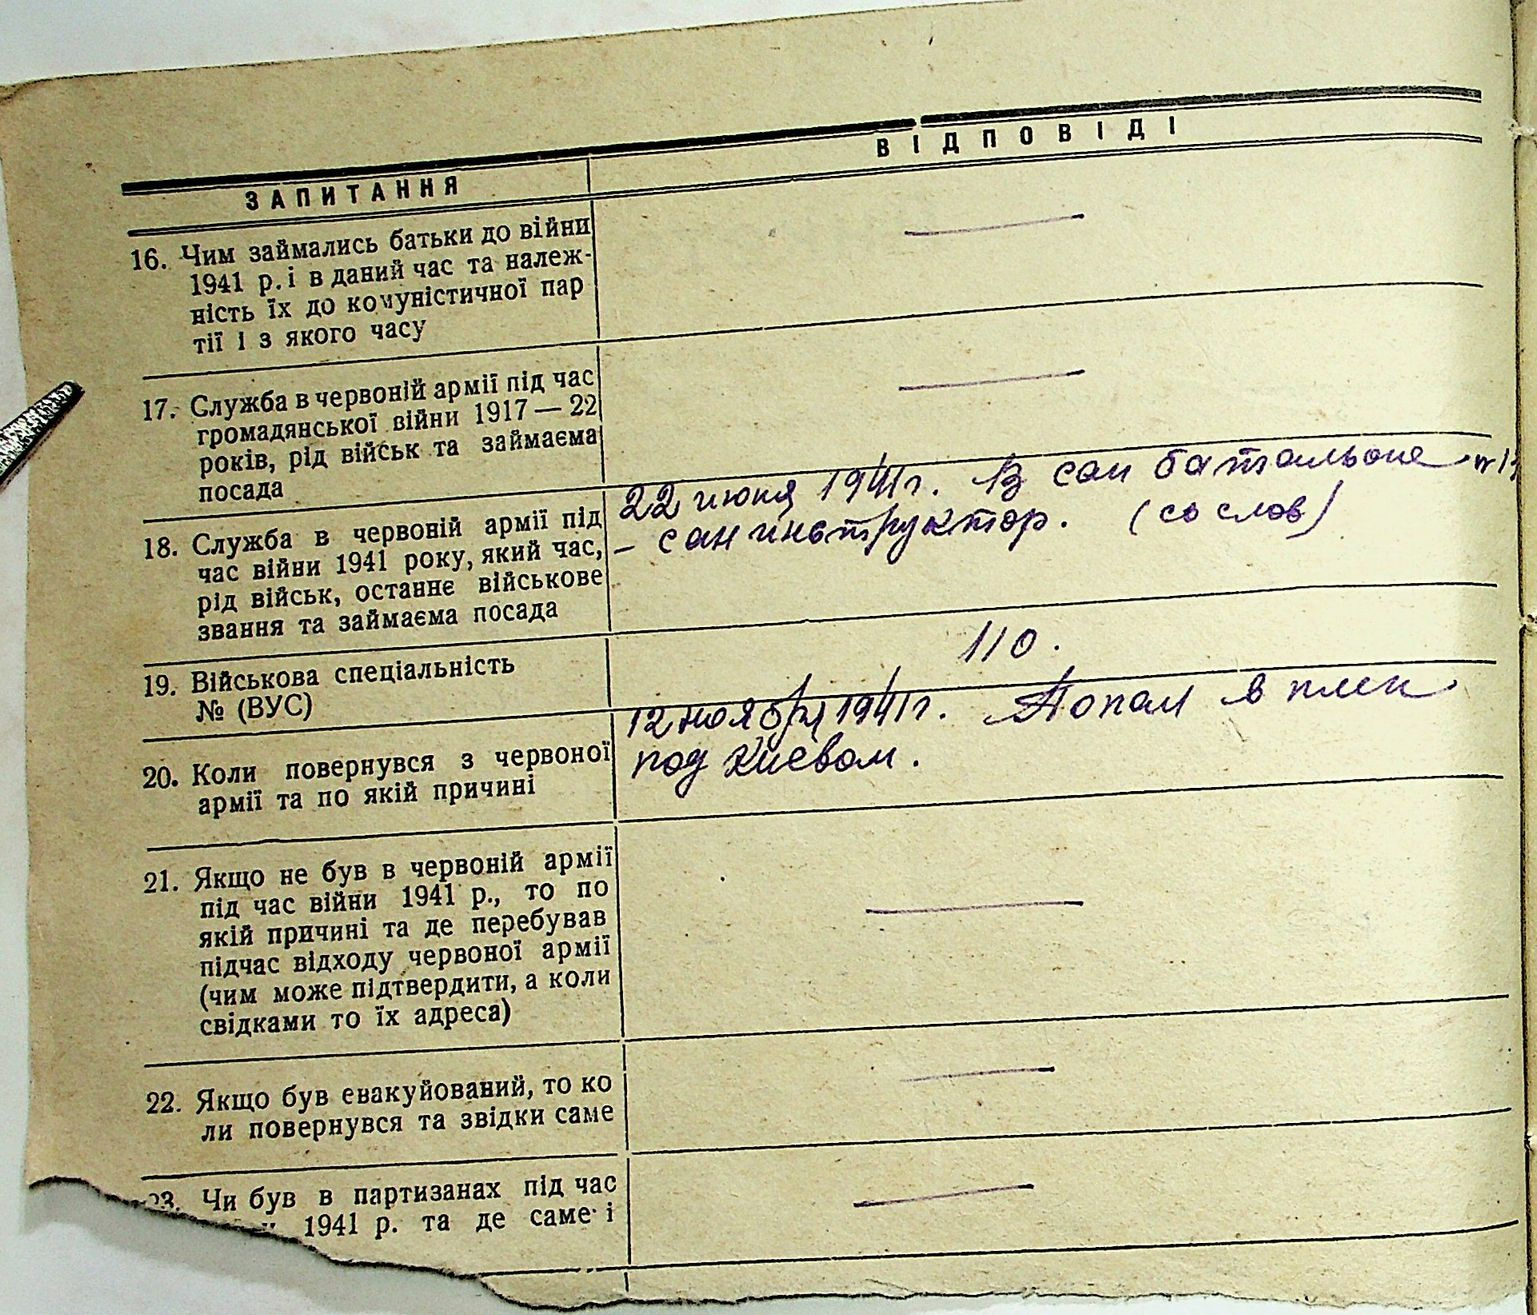 ЗАПИТАННЯ
ВІДПОВІДІ
16. Чим займались батьки до війни
1941 р. і в даний час та належ-
ність їх до комуністичної пар
тії і з якого часу
—
17. Служба в червоній армії під час
громадянської війни 1917 — 22
років, рід військ та займаєма
посада
—
18. Служба в червоній армії під
час війни 1941 року, який час,
рід військ, останнє військове
звання та займаєма посада
22 июня 1941 г. В сан батальоне
– санинструктор. (со слов)
19. Військова спеціальність
№ (ВУС)
110.
20. Коли повернувся з червоної
армії та по якій причині
12 ноября 1941 г. Попал в плен
под Киевом.
21. Якщо не був в червоній армії
під час війни 1941 р., то по
якій причині та де перебував
підчас відходу червоної армії
(чим може підтвердити, а коли
свідками то їх адреса)
—
22. Якщо був евакуйований, то ко
ли повернувся та звідки саме
—
23. Чи був в партизанах під час
1941 р. та де саме і
—